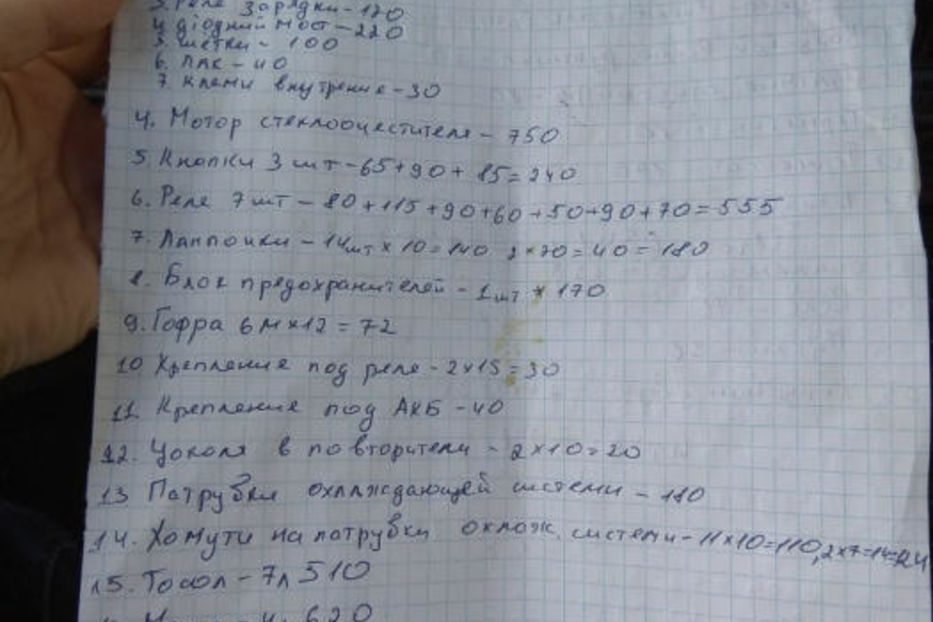 3. Реле зарядки - 120
4. діодний мост - 220
5. щетки - 100
6. ЛАК - 40
7. клеми внутрение - 30
4. Мотор стеклооцестителя - 750
5. Кнопки 3 шт - 65+90+85=240
6. Реле 7шт - 80+115+90+60+50+90+70=555
7. Лампочки - 14шт×10=140 2×20=40=180
8. Блок предохранителей - 1шт × 170
9. Гофра 6м×12=72
10 Крепление под реле - 2×15=30
11 Крепление под АКБ - 40
12. Цоколя в повторители - 2×10=20
13 Патрубки охлаждающей системи - 180
14. Хомути на патрубки охлаж. системи - 11×10=110, 2×7=14=124
15. Тосол - 7л 510
620